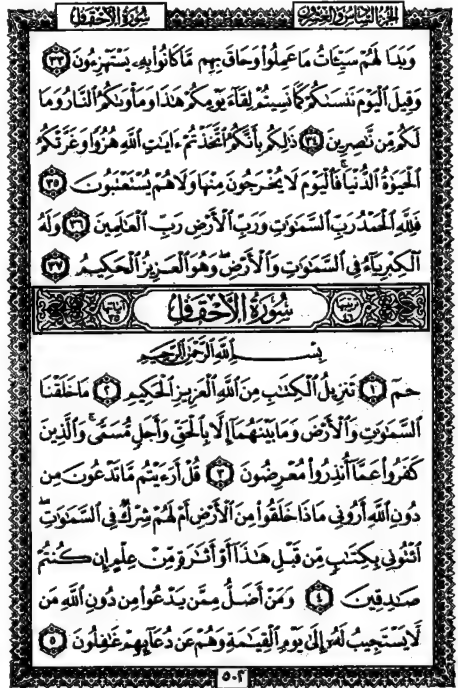 الجزء السادس والعشرون
سورة الأحقاف
وَبَدَا لَهُمْ سَيِّـَٔاتُ مَا عَمِلُوا۟ وَحَاقَ بِهِم مَّا كَانُوا۟ بِهِۦ يَسْتَهْزِءُونَ ٣٣
وَقِيلَ ٱلْيَوْمَ نَنسَىٰكُمْ كَمَا نَسِيتُمْ لِقَآءَ يَوْمِكُمْ هَٰذَا وَمَأْوَىٰكُمُ ٱلنَّارُ وَمَا
لَكُم مِّن نَّٰصِرِينَ ٣٤ ذَٰلِكُم بِأَنَّكُمُ ٱتَّخَذْتُمْ ءَايَٰتِ ٱللَّهِ هُزُوًا وَغَرَّتْكُمُ
ٱلْحَيَوٰةُ ٱلدُّنْيَا ۚ فَٱلْيَوْمَ لَا يُخْرَجُونَ مِنْهَا وَلَا هُمْ يُسْتَعْتَبُونَ ٣٥
فَلِلَّهِ ٱلْحَمْدُ رَبِّ ٱلسَّمَٰوَٰتِ وَرَبِّ ٱلْأَرْضِ رَبِّ ٱلْعَٰلَمِينَ ٣٦ وَلَهُ
ٱلْكِبْرِيَآءُ فِى ٱلسَّمَٰوَٰتِ وَٱلْأَرْضِ ۖ وَهُوَ ٱلْعَزِيزُ ٱلْحَكِيمُ ٣٧
سورة الأحقاف
بِسْمِ ٱللَّهِ ٱلرَّحْمَٰنِ ٱلرَّحِيمِ
حمٓ ١ تَنزِيلُ ٱلْكِتَٰبِ مِنَ ٱللَّهِ ٱلْعَزِيزِ ٱلْحَكِيمِ ٢ مَا خَلَقْنَا
ٱلسَّمَٰوَٰتِ وَٱلْأَرْضَ وَمَا بَيْنَهُمَآ إِلَّا بِٱلْحَقِّ وَأَجَلٍ مُّسَمًّى ۚ وَٱلَّذِينَ
كَفَرُوا۟ عَمَّآ أُنذِرُوا۟ مُعْرِضُونَ ٣ قُلْ أَرَءَيْتُم مَّا تَدْعُونَ مِن
دُونِ ٱللَّهِ أَرُونِى مَاذَا خَلَقُوا۟ مِنَ ٱلْأَرْضِ أَمْ لَهُمْ شِرْكٌ فِى ٱلسَّمَٰوَٰتِ ۖ
ٱئْتُونِى بِكِتَٰبٍ مِّن قَبْلِ هَٰذَآ أَوْ أَثَٰرَةٍ مِّنْ عِلْمٍ إِن كُنتُمْ
صَٰدِقِينَ ٤ وَمَنْ أَضَلُّ مِمَّن يَدْعُوا۟ مِن دُونِ ٱللَّهِ مَن
لَّا يَسْتَجِيبُ لَهُۥٓ إِلَىٰ يَوْمِ ٱلْقِيَٰمَةِ وَهُمْ عَن دُعَآئِهِمْ غَٰفِلُونَ ٥
٥٠٢